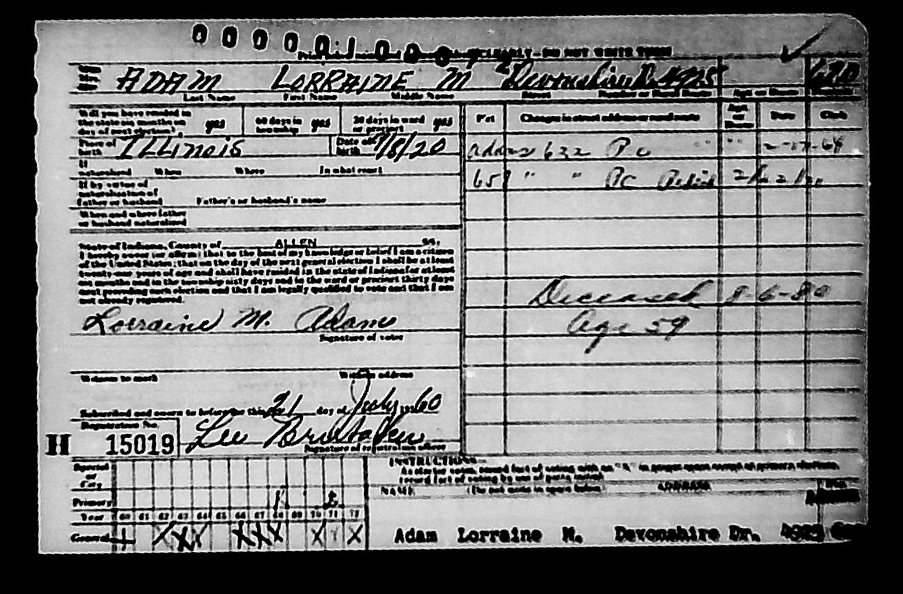 ADAM LORRAINE M Devonshire Dr. 4925 670
Last Name First Name Middle Name Street
Will you have resided in the state six months on day of next election? yes 60 days in township yes 30 days in ward or precinct yes
Pct Changes in street address or rural route Date Clerk
Place of birth ILLINOIS Date of birth 7/8/20
Adams 632 PC " "
If naturalized When Where In what court
651 " " PC
If by virtue of naturalization of father or husband Father's or husband's name
When and where father or husband naturalized
State of Indiana, County of ALLEN SS.
I hereby swear (or affirm) that to the best of my knowledge or belief I am a citizen
of the United States; that on the day of the next general election I shall be at least
twenty-one years of age and shall have resided in the state of Indiana for at least
six months and in the township sixty days and in the ward or precinct thirty days
next preceding such election and that I am legally qualified to vote and that I am
not already registered.
Deceased 8-6-80
Age 59
Lorraine M. Adam
Signature of voter
Witness to mark Witness address
Subscribed and sworn to before me this 21 day of July 1960
Registration No.
H 15019 Lee
Signature of registration officer
INSTRUCTIONS—
Special or City
Primary
NAME (Do not write in space below) ADDRESS
Year 60 61 62 63 64 65 66 67 68 69 70 71 72
General X X X X X X X X X X
Adam Lorraine M. Devonshire Dr.